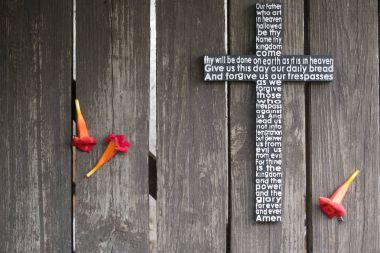 Our Father
who art
in heaven
hallowed
be thy
Name thy
kingdom
come
thy will be done on earth as it is in heaven
Give us this day our daily bread
And forgive us our trespasses
as we
forgive
those
who
trespass
against
us And
lead us
not into
temptation
but deliver
us from
evil us
from evil
For thine
is the
kingdom
and the
power
and the
glory
for ever
and ever
Amen